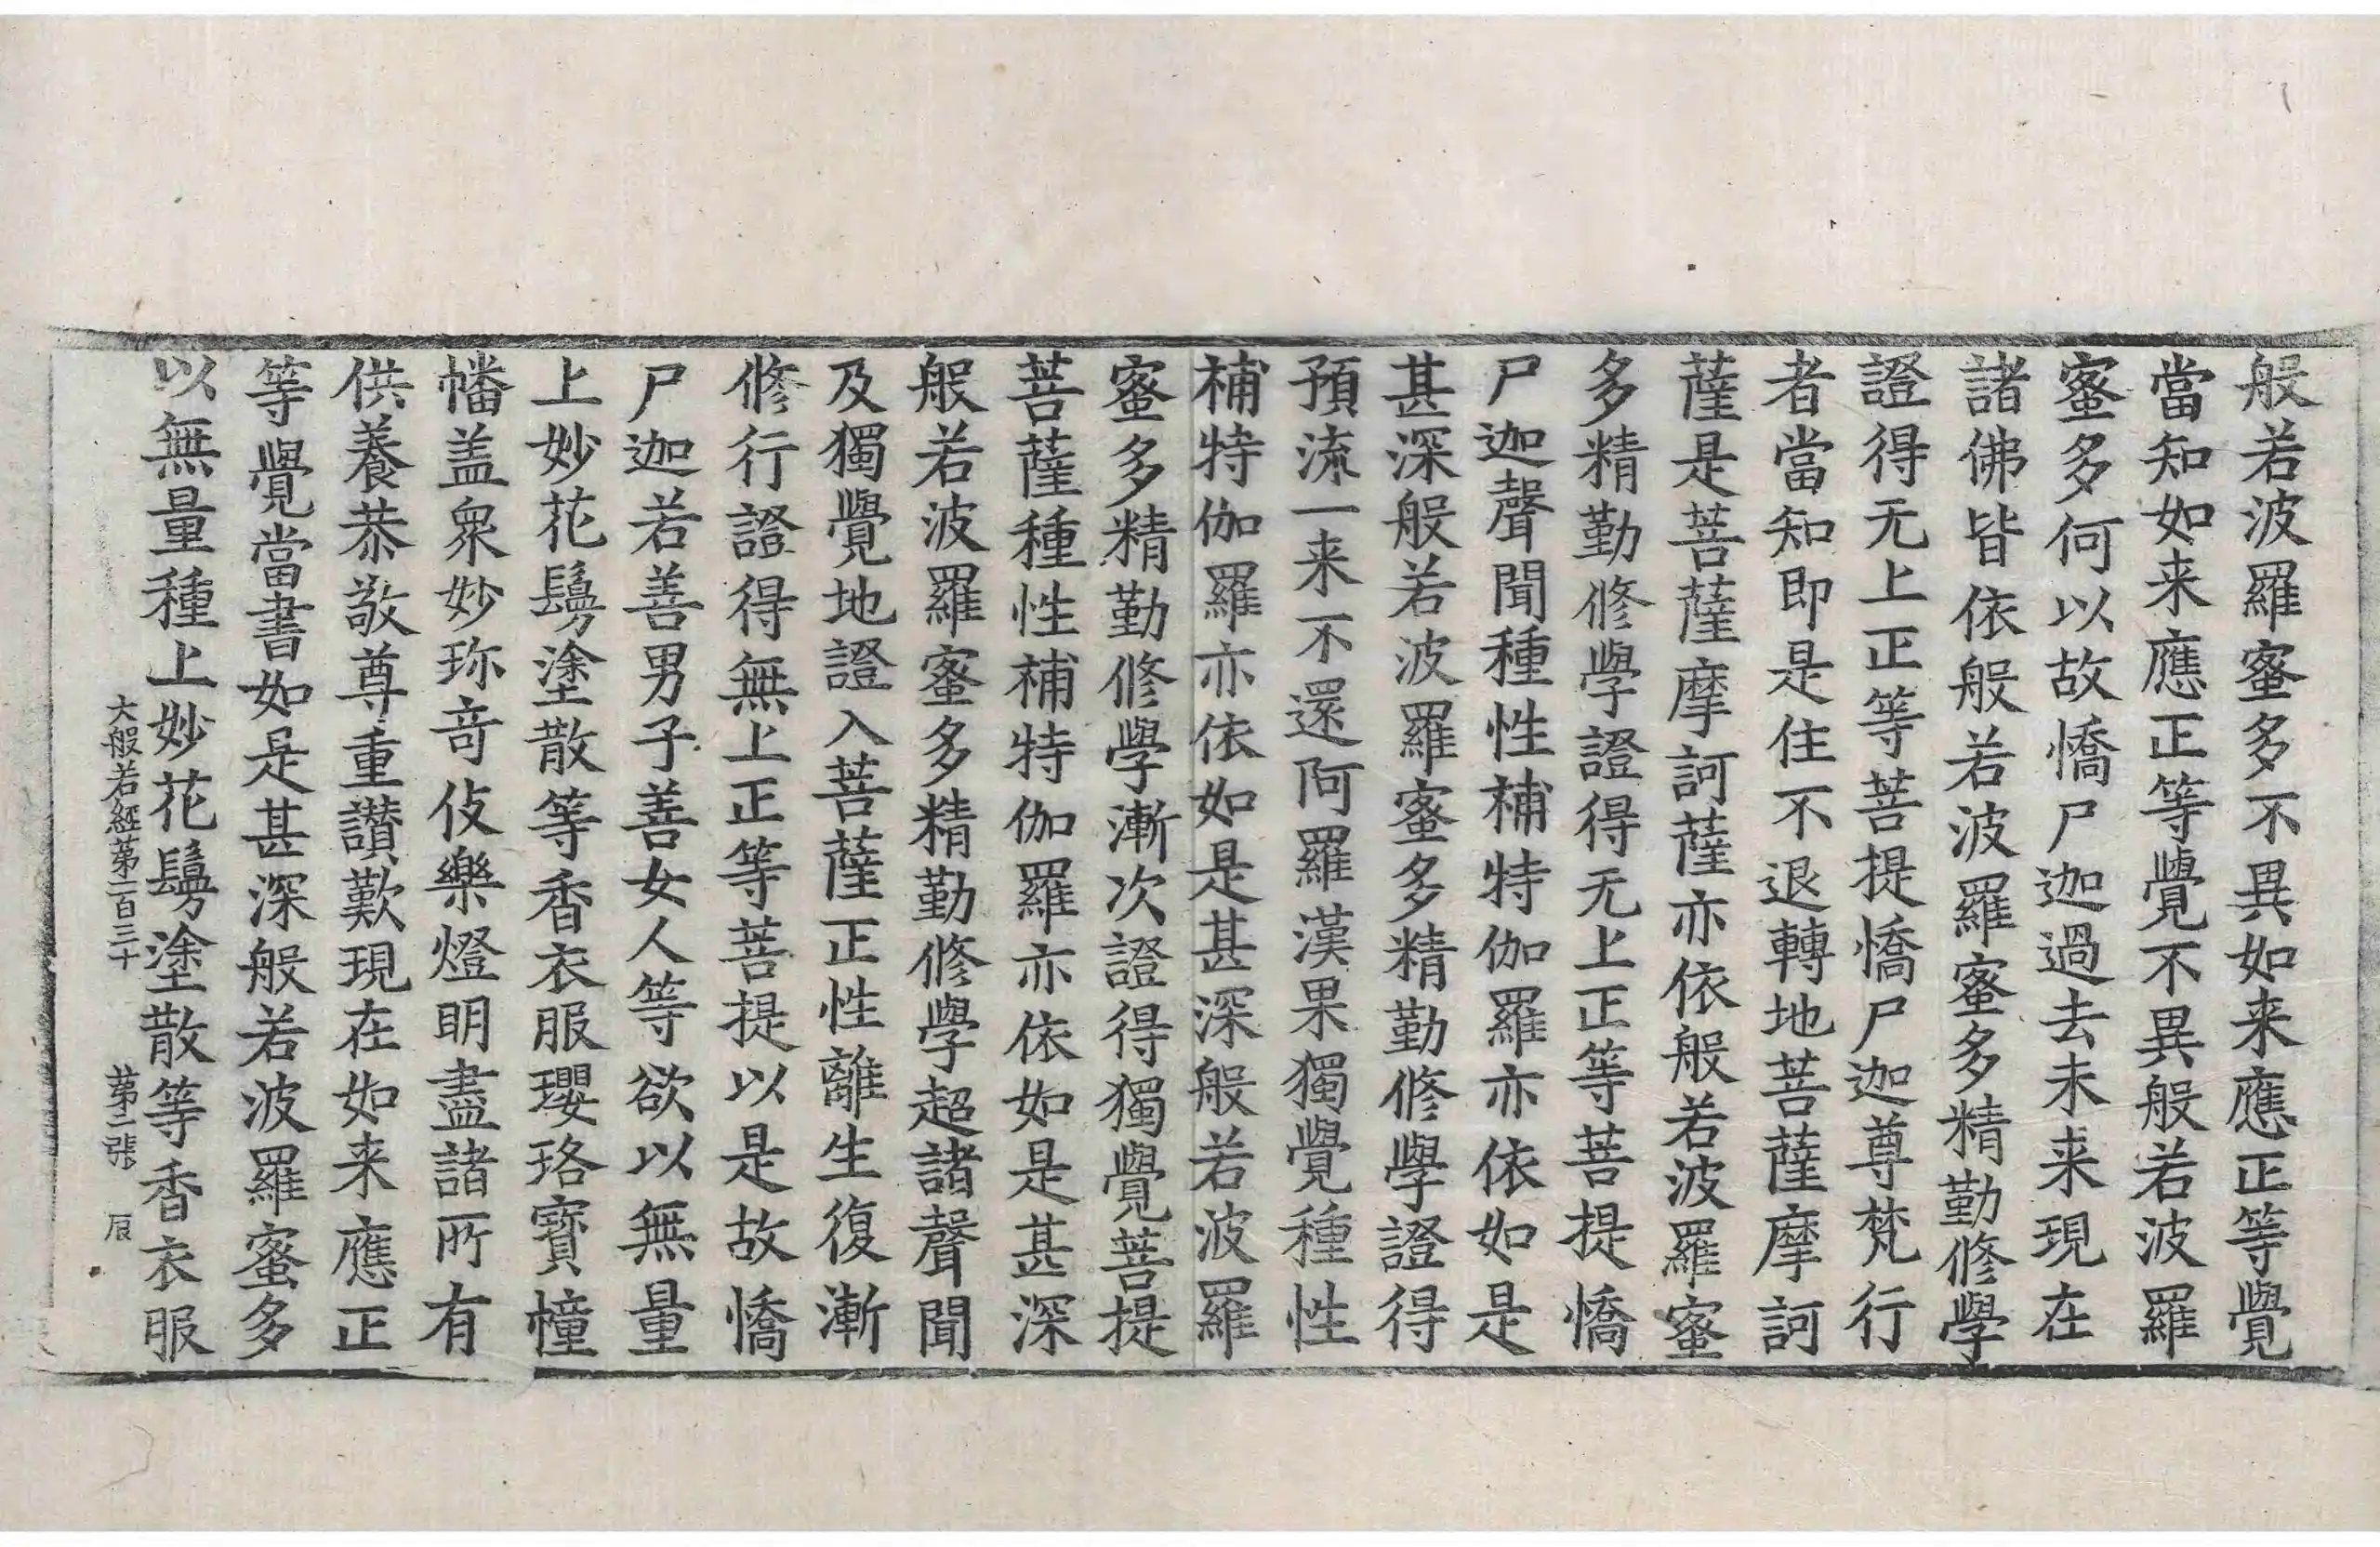 般若波羅蜜多不異如来應正等覺
當知如来應正等覺不異般若波羅
蜜多何以故憍尸迦過去未来現在
諸佛皆依般若波羅蜜多精勤修學
證得无上正等菩提憍尸迦尊梵行
者當知即是住不退轉地菩薩摩訶
薩是菩薩摩訶薩亦依般若波羅蜜
多精勤修學證得无上正等菩提憍
尸迦聲聞種性補特伽羅亦依如是
甚深般若波羅蜜多精勤修學證得
預流一来不還阿羅漢果獨覺種性
補特伽羅亦依如是甚深般若波羅
蜜多精勤修學漸次證得獨覺菩提
菩薩種性補特伽羅亦依如是甚深
般若波羅蜜多精勤修學超諸聲聞
及獨覺地證入菩薩正性離生復漸
修行證得無上正等菩提以是故憍
尸迦若善男子善女人等欲以無量
上妙花鬘塗散等香衣服瓔珞寶幢
幡盖衆妙珎竒伎樂燈明盡諸所有
供養恭敬尊重讃歎現在如来應正
等覺當書如是甚深般若波羅蜜多
以無量種上妙花鬘塗散等香衣服
大般若經第一百三十 第二張 辰